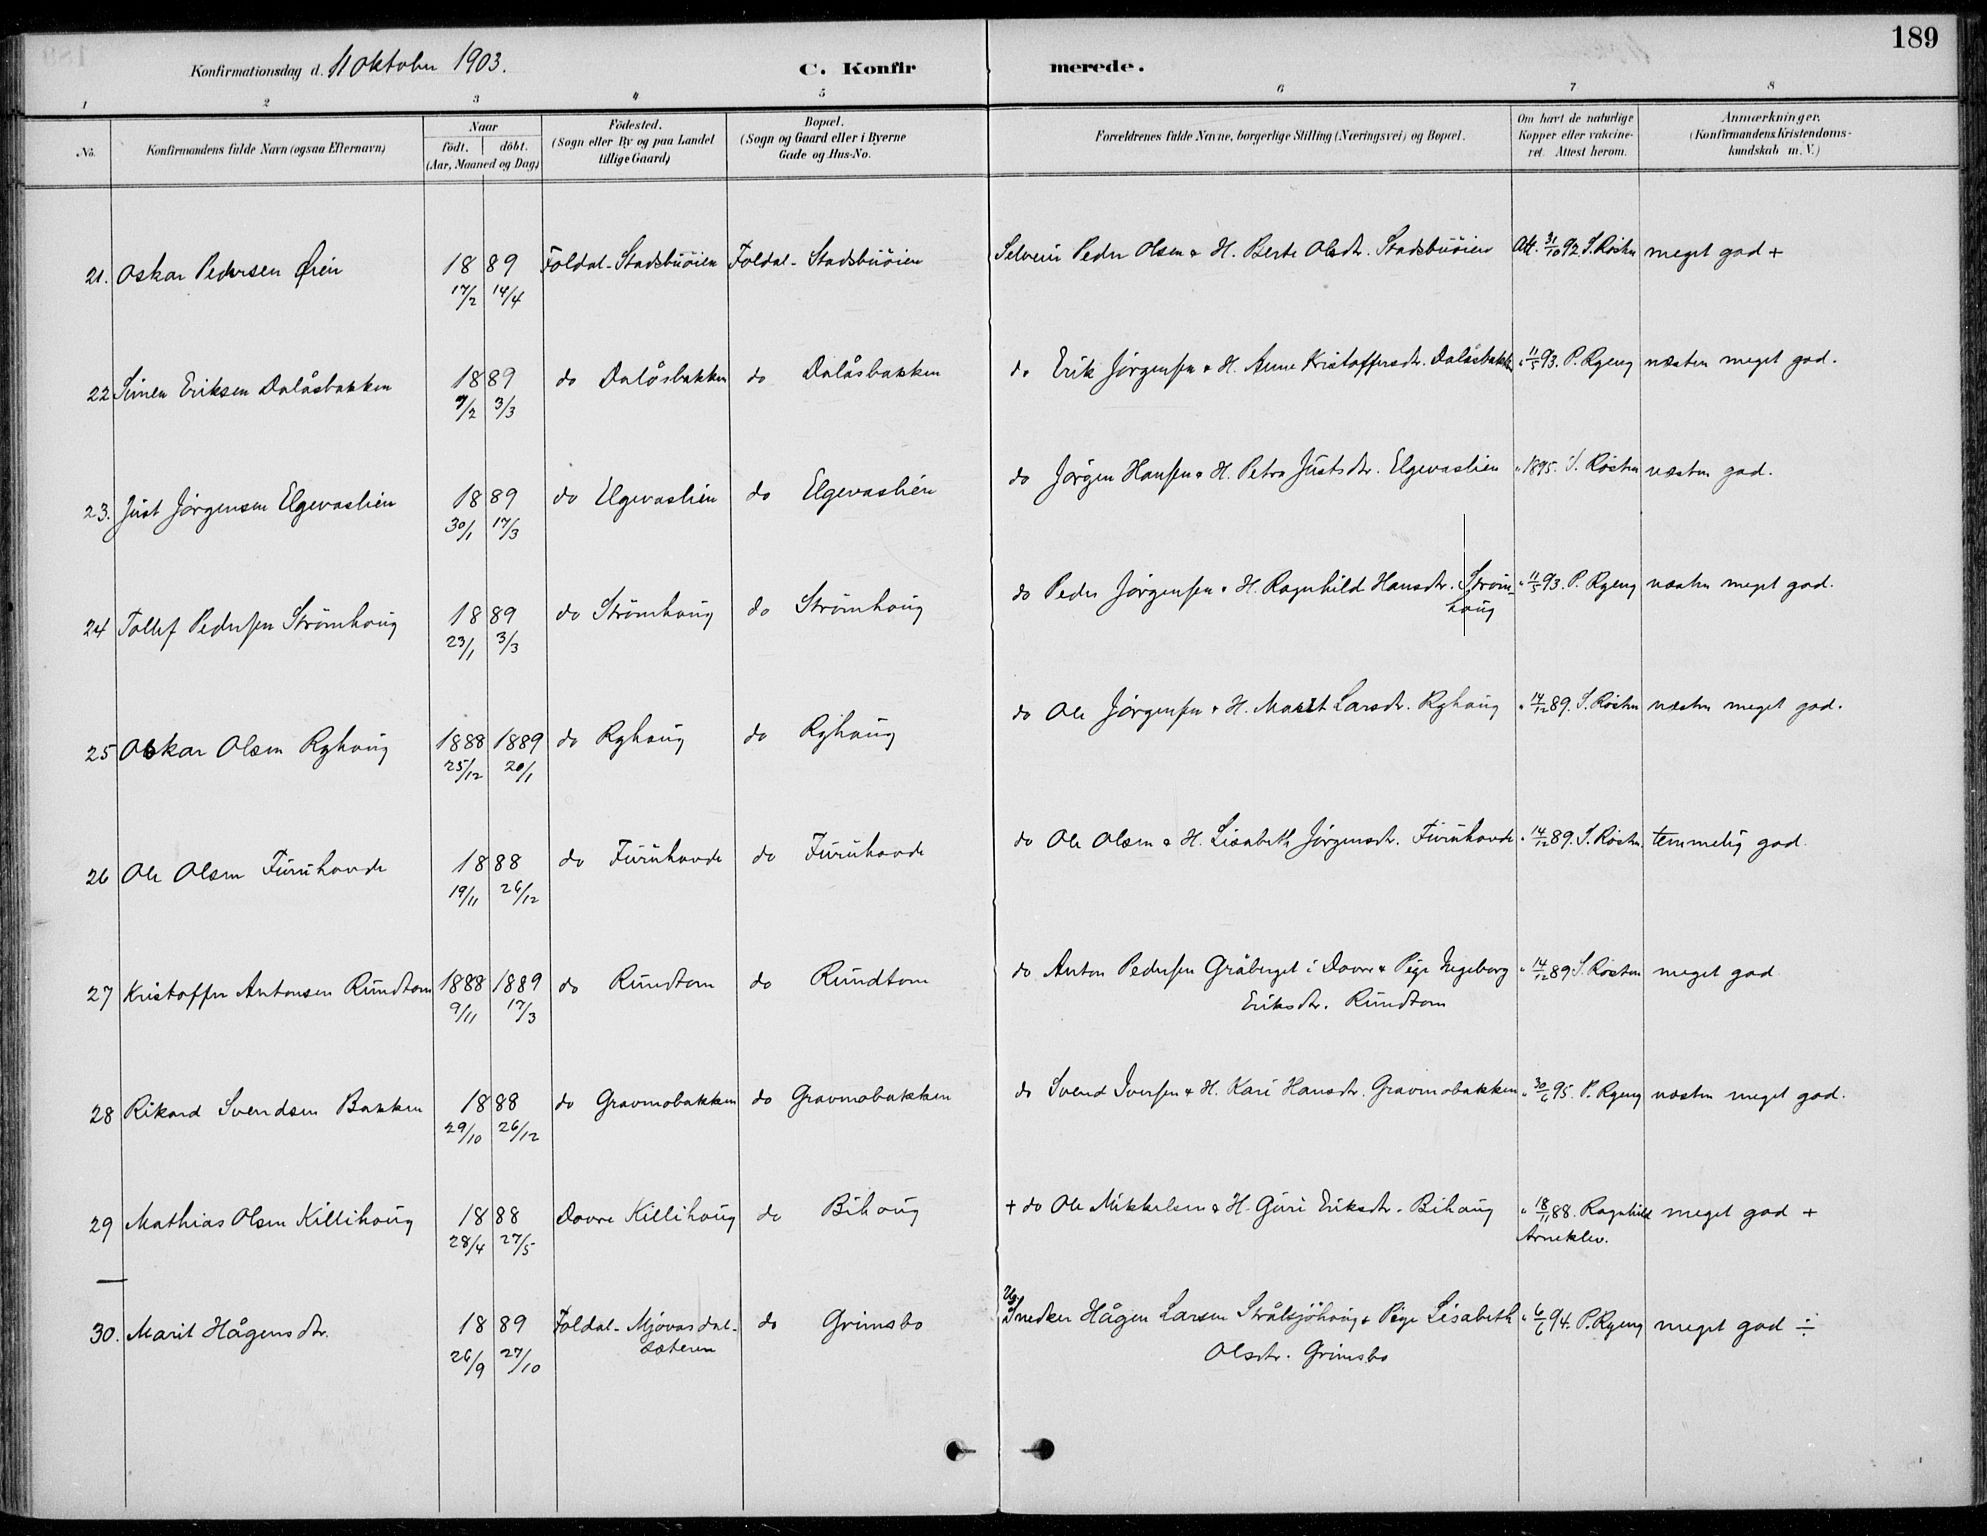 189
Konfirmationsdag d. 11 Oktober 1903.
C. Konfirmerede.
1 2 3 4 5 6 7 8
No.
Konfirmandens fulde Navn (ogsaa Efternavn)
Naar
født. døbt.
(Aar, Maaned og Dag)
Födested.
(Sogn eller By og paa Landet
tillige Gaard)
Bopæl.
(Sogn og Gaard eller i Byerne
Gade og Hus-No.
Forældrenes fulde Navne, borgerlige Stilling (Næringsvei) og Bopæl.
Om havt de naturlige
Kopper eller vakcine-
ret. Attest herom.
Anmærkninger.
(Konfirmandens Kristendoms-
kundskab m. V.)
21. Oskar Pedersen Øien 1889 Foldal-Stadsbuöien Foldal-Stadsbuöien Selveier Peder Olsen & H. Berte Olsdtr. Stadsbuöien Att. 31/10 92. S. Rösten meget god +
17/2 14/4
22 Simen Eriksen Dalåsbakken 1889 do Dalåsbakken do Dalåsbakken do Erik Jörgensen & H. Anne Kristoffersdtr. Dalåsbakken " 11/5 93. P. Ryeng næsten meget god.
9/2 3/3
23. Just Jörgensen Elgevaslien 1889 do Elgevaslien do Elgevaslien do Jörgen Hansen & H. Petra Justsdtr. Elgevaslien " 1895. S. Rösten næsten god.
30/1 17/3
24 Tollef Pedersen Strömhoug 1889 do Strömhoug do Strömhoug do Peder Jörgensen & H. Ragnhild Hansdtr. Ström-
houg " 11/5 93. P. Ryeng næsten meget god.
23/1 3/3
25 Oskar Olsen Ryhoug 1888 1889 do Ryhoug do Ryhoug do Ole Jörgensen & H. Marit Larsdtr. Ryhoug " 14/12 89. S. Rösten næsten meget god.
25/12 20/1
26 Ole Olsen Furuhovde 1888 do Furuhovde do Furuhovde do Ole Olsen & H. Lisabeth Jörgensdtr. Furuhovde " 14/12 89. S. Rösten. temmelig god.
19/11 26/12
27 Kristoffer Antonsen Rundtom 1888 1889 do Rundtom do Rundtom do Anton Pedersen Gråberget i Dovre & Pige Ingeborg
Eriksdtr. Rundtom " 14/12 89 S. Rosten meget god
9/11 17/3
28 Rikard Svendsen Bakken 1888 do Gravmobakken do Gravmobakken do Svend Iversen & H. Kari Hansdtr. Gravmobakken " 30/6 95. P. Ryeng næsten meget god.
29/10 26/12
29 Mathias Olsen Killihoug 1888 Dovre Killihoug do Bihoug + do Ole Mikkelsen & H. Guri Eriksdtr. Bihoug " 18/11 88. Ragnhild
Arneklev. meget god +
28/4 27/5
30. Marit Hågensdtr. 1889 Foldal-Mjovasdal-
sæteren do Grimsbo Ug.
Snedker Hågen Larsen Strålsjöhoug & Pige Lisabeth
Olsdtr. Grimsbo " 6/6 94. P. Ryeng meget god ÷
26/9 27/10